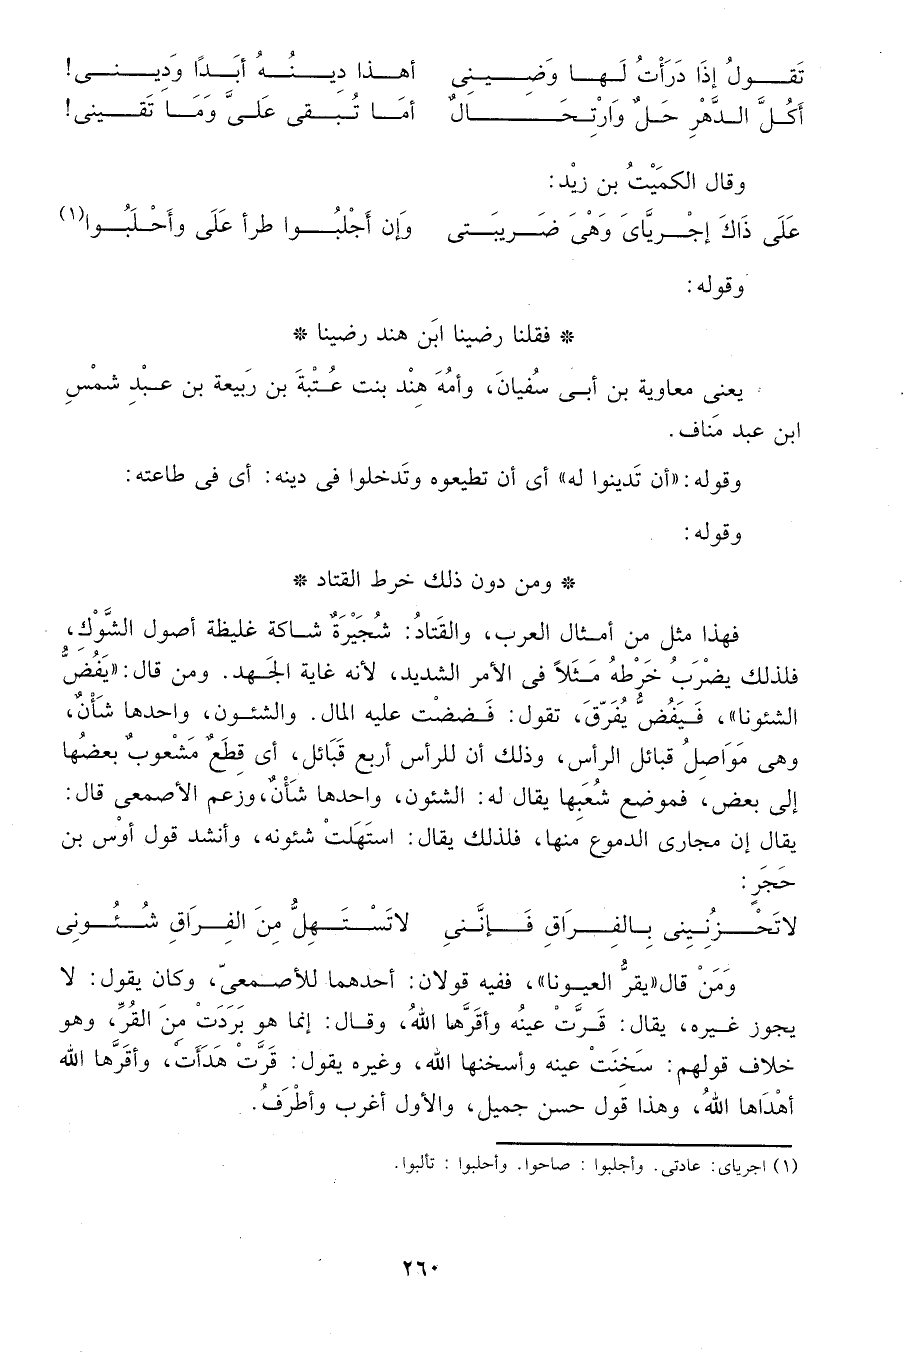 تَقُولُ إذَا دَرَأتُ لَهَا وَضِينِى أهذا دِينُهُ أبَدًا وَدِينِى!
أكُلَّ الدَّهْرِ حَلٌ وَارْتِحَالٌ أمَا تُبقى عَلَىَّ وَمَا تَقِينى!
وقال الكميْتُ بن زيْد:
عَلَى ذَاكَ إجْرِيَّاىَ وَهْىَ ضَرِيبَتى وَإن أجْلَبُوا طرأ عَلَى وأَحْلَبُوا(١)
وقوله:
* فقلنا رضينا ابَن هند رضينا *
يعنى معاوية بن أبى سفُيانَ، وأمهُ هنْد بنت عُتْبةَ بن رَبيعة بن عبْد شمْسِ
ابن عبد مَناف.
وقوله: «أن تَدينوا له» أى أن تطيعوه وتَدخلوا فى دينه: أى فى طاعته:
وقوله:
* ومن دون ذلك خرط القتاد *
فهذا مثل من أمثال العرب، والقَتادُ: شُجَيْرَةٌ شاكة غليظة أصول الشَّوْك،
فلذلك يضْرَبُ خَرْطهُ مَثلاً فى الأمر الشديد، لأنه غاية الجَهد. ومن قال: «يَفُضُّ
الشئونا»، فَيَفُضُّ يُفَرِّق، تقول: فَضضْت عليه المال. والشئون، واحدها شَأنٌ،
وهى مَوَاصلُ قبائل الرأس، وذلك أن للرأس أربع قَبَائل، أى قطَعٌ مَشْعوبٌ بعضُها
إلى بعض، فموضع شُعَبِها يقال له: الشئون، واحدها شَأْنٌ، وزعم الأصمعى قال:
يقال إن مجارى الدموع منها، فلذلك يقال: استَهَلتْ شئونه، وأنشد قول أوْس بن
حَجَرٍ:
لاتَحْزُنِينى بِالفِرَاقِ فَإنَّنِى لاتَسْتَهِلُّ مِنَ الفِرَاقِ شُئُونِى
وَمَنْ قال«يقرُّ العيونا»، ففيه قولان: أحدهما للأصمعىّ، وكان يقول: لا
يجوز غيره، يقال: قَرَّتْ عينُه وأقرَّها اللهُ، وقال: إنما هو بَرَدَتْ مِنَ القُرِّ، وهو
خلاف قولهم: سَخنَتْ عينه وأسخنها الله، وغيره يقول: قَرَّتْ هَدَأت، وأقرَّها الله
أهْدَأها اللهُ، وهذا قول حسن جميل، والأول أغرب وأطْرَفُ.
(١) اجرياى: عادتى. وأجلبوا : صاحوا. وأحلبوا : تألبوا.
٢٦٠